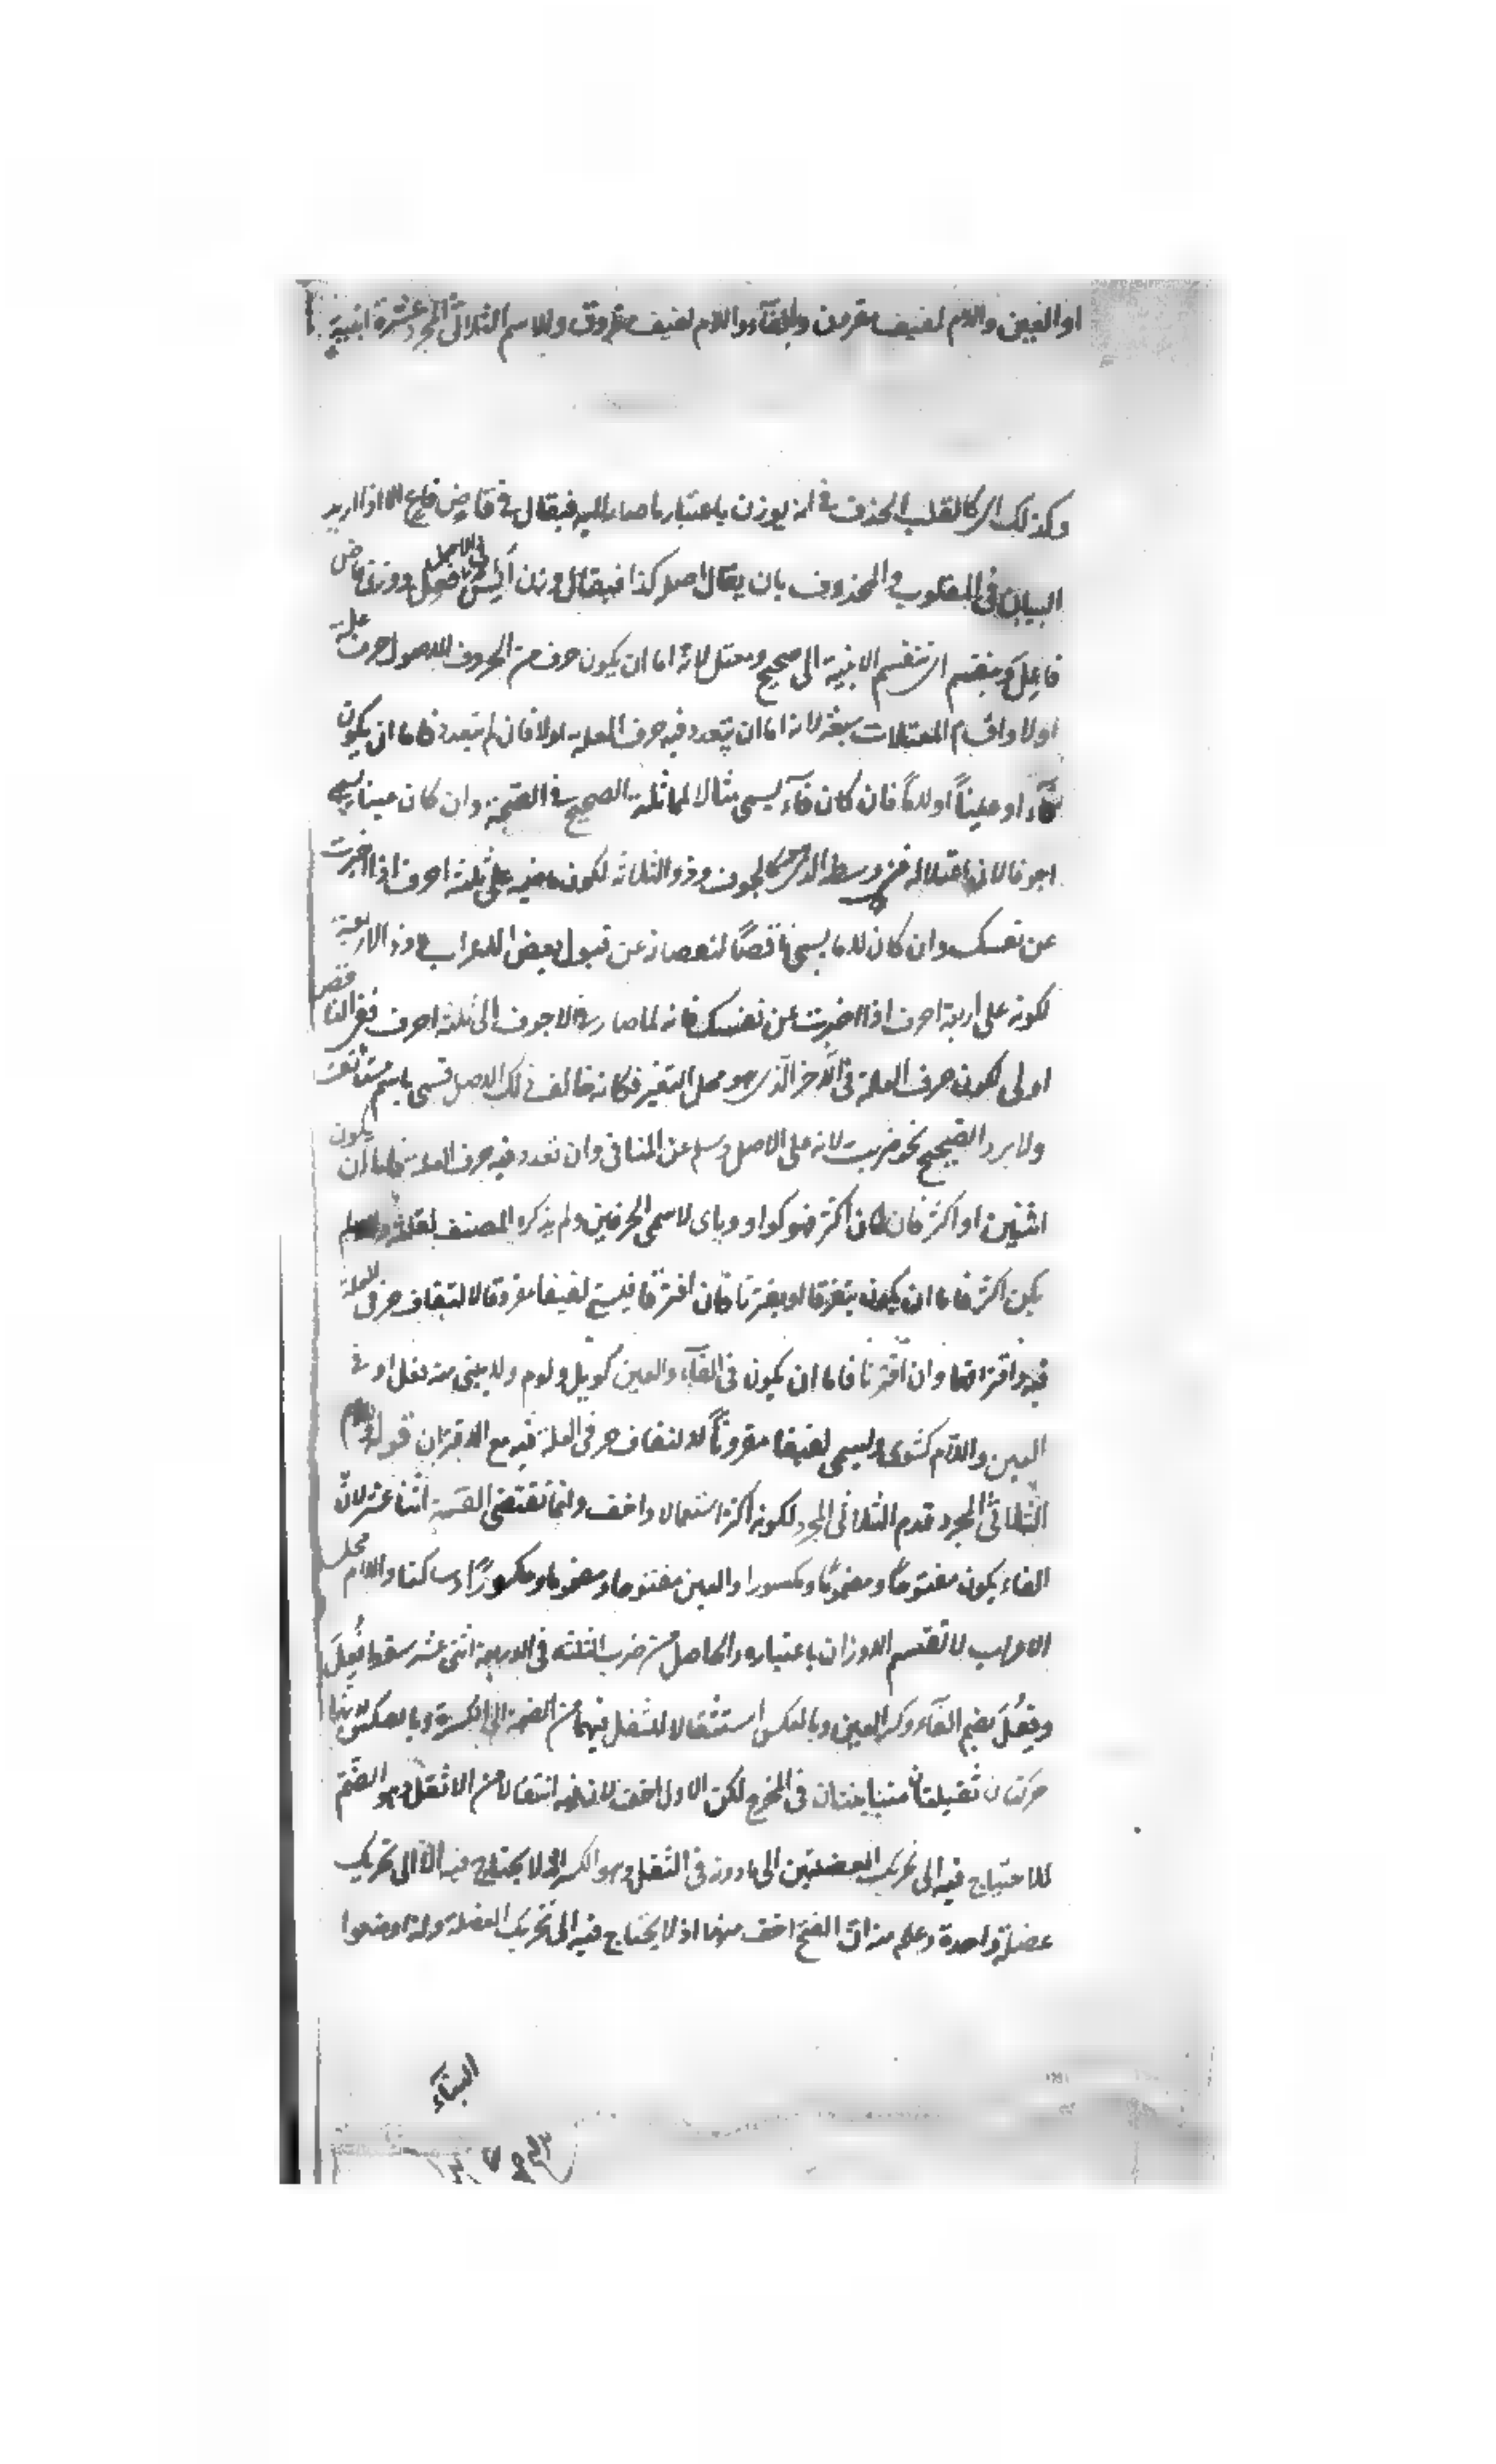 او العين واللام لفيف مقرون وبالفاء واللام لفيف مفروق وللاسم الثلاثى المجرد عشرة ابنية
وكذلك اى كالقلب الحذف فى انه يوزن باعتبار ما صار اليه فيقال فى قاض فاع الا اذا اريد
البيان فى المقلوب والمحذوف بان يقال اصله كذا فيقال وزن أيس فى الاصل فعل ووزن قاض
فاعل وينقسم اى تنقسم الابنية الى صحيح ومعتل لانه اما ان يكون حرف من الحروف الاصول حرف علة
اولا واقسام المعتلات سبعة لانه اما ان يتعدد فيه حرف العلة اولا فان لم يتعدد فاما ان يكون
فآء او عيناً او لاماً فان كان فآء يسمى مثالا لمماثلته الصحيح فى الصحة وان كان عينا يسمى
اجوفا لان اعتلاله فى وسطه الذى كالجوف وذو الثلاثة لكون ماضيه على ثلثة احرف اذا اخبرت
عن نفسك وان كان لاما يسمى ناقصًا لنقصانه عن قبول بعض الاعراب وذو الاربعة
لكونه على اربعة احرف اذا اخبرت عن نفسك فانه لما صار فى الاجوف الى ثلثة احرف ففى الناقص
اولى لكون حرف العلة فى الآخر الذى هو محل التغير فكانه خالف فى ذلك الاصل فسمى باسم
ولا يرد الصحيح نحو ضربت لانه على الاصل وسلم عن المنافى وان تعدد فيه حرف العلة فاما ان يكون
اثنين او اكثر فان كان اكثر فهو كواو وياى لاسمى الحرفين ولم يذكره المصنف لقلته وان لم
يكن اكثر فاما ان يكون يتفرقا او يقترنا فان افترقا فيسمى لفيفا مفروقا لالتفاف حرفى العلة
فيه وافتراقهما وان اقترنا فاما ان يكون فى الفآء والعين كويل ويوم ولا يبنى منه فعل او فى
العين واللام كشوى ويسمى لفيفا مقروناً لالتفاف حرفى العلة فيه مع الاقتران قوله
الثلاثى المجرد قدم الثلاثى المجرد لكونه اكثر استعمالا واخف وانما تقتضى القسمة اثنا عشر لان
الفاء يكون مفتوحًا ومضمومًا ومكسورا والعين مفتوحا ومضموما ومكسورًا وساكنا واللام محل
الاعراب لا تنقسم الاوزان باعتباره والحاصل من ضرب الثلثة فى الاربعة اثنى عشر سقط فُعِلَ
وفِعُلَ بضم الفآء وكسر العين وبالعكس استثقالا للنقل فيهما من الضمة الى الكسرة وبالعكس لانهما
حركتان ثقيلتان متباينتان فى المخرج لكن الاول اخف لان فيه انتقالا من الاثقل وهو الضم
للاحتياج فيه الى تحريك العضلتين الى ما دونه فى الثقل وهو الكسر اذ لا يحتاج فيه الا الى تحريك
عضلة واحدة وعلم منه ان الفتح اخف منهما اذ لا يحتاج فيه الى تحريك العضلة ولذا وضعوا
البنآء